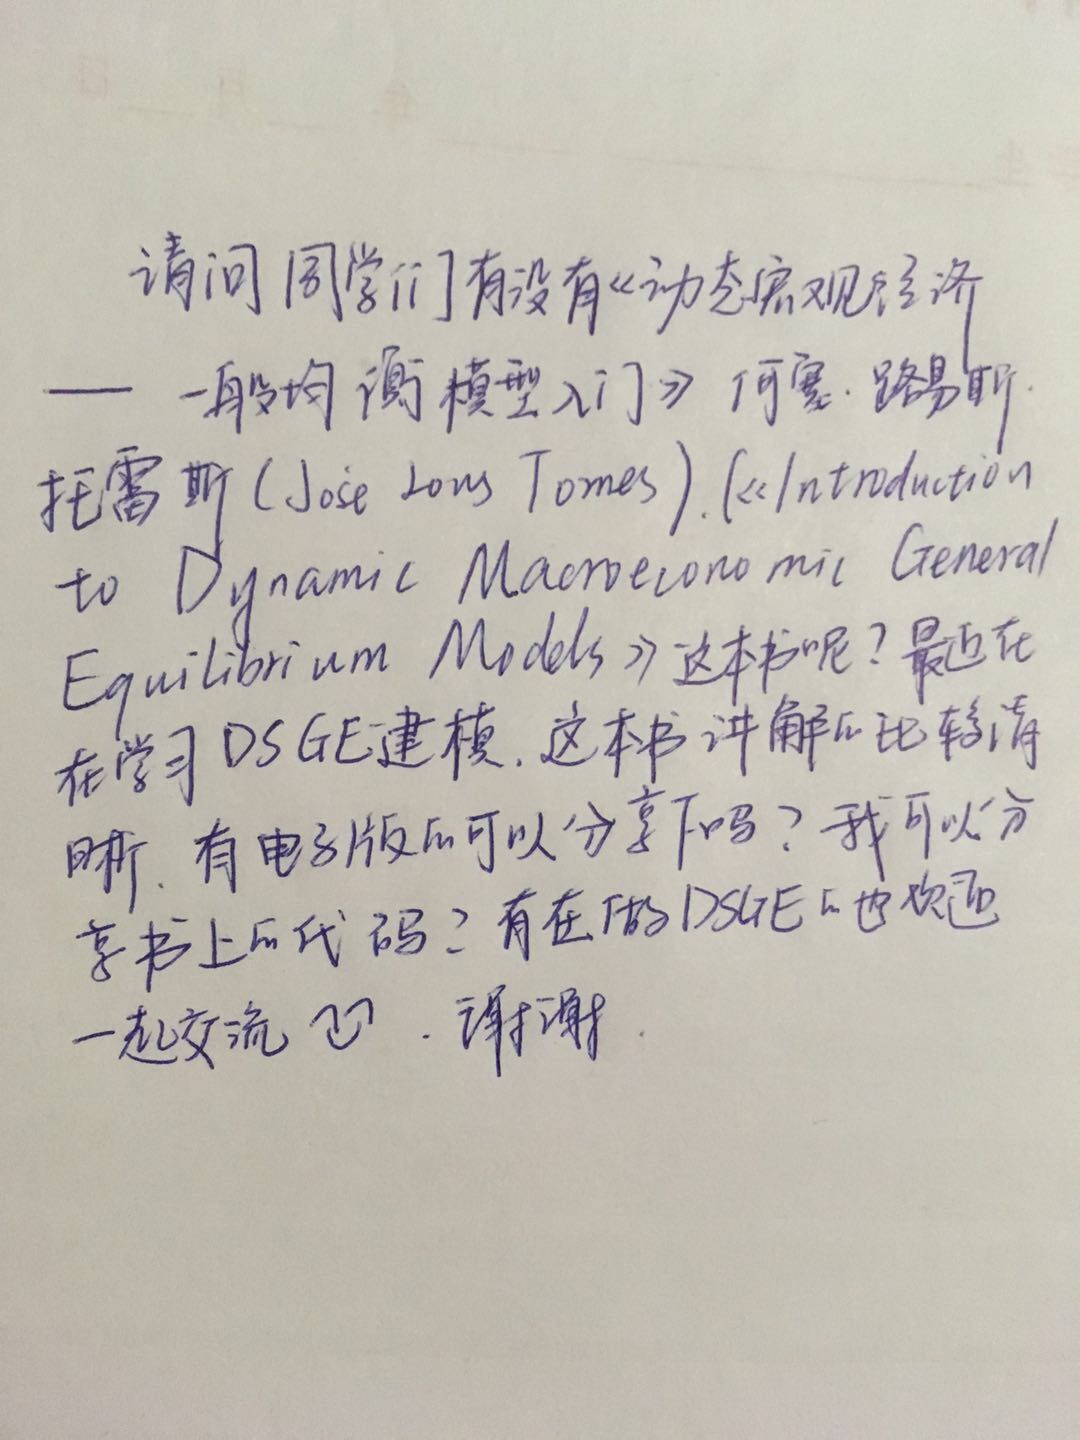 请问同学们有没有《动态宏观经济
—— 一般均衡模型入门》何塞·路易斯·
托雷斯(Jose Lous Torres).(《Introduction
to Dynamic Macroeconomic General
Equilibrium Models》这本书呢?最近在
在学习DSGE建模.这本书讲解的比较清
晰.有电子版的可以分享下吗?我可以分
享书上的代码?有在做DSGE的也欢迎
一起交流.谢谢.